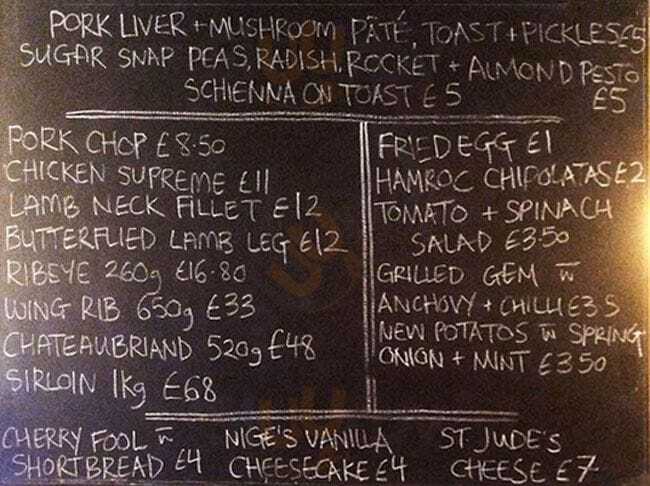 PORK LIVER + MUSHROOM PÂTÉ, TOAST + PICKLES £5
SUGAR SNAP PEAS, RADISH, ROCKET + ALMOND PESTO
£5
SCHIENNA ON TOAST £5
PORK CHOP £8.50
CHICKEN SUPREME £11
LAMB NECK FILLET £12
BUTTERFLIED LAMB LEG £12
RIBEYE 260g £16.80
WING RIB 650g £33
CHATEAUBRIAND 520g £48
SIRLOIN 1Kg £68
FRIED EGG £1
HAMROC CHIPOLATAS £2
TOMATO + SPINACH
SALAD £3.50
GRILLED GEM w
ANCHOVY + CHILLI £3.5
NEW POTATOS w SPRING
ONION + MINT £3.50
CHERRY FOOL w
SHORTBREAD £4
NIGE'S VANILLA
CHEESECAKE £4
ST. JUDE'S
CHEESE £7